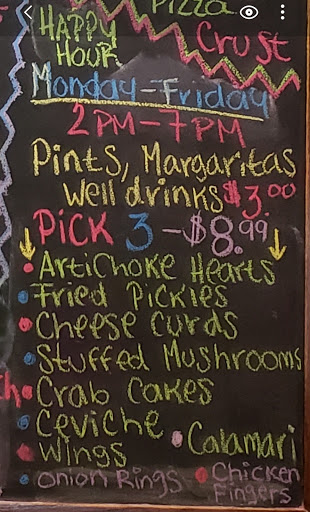 Pizza
Crust
HAPPY
HOUR
Monday-Friday
2PM-7PM
Pints, Margaritas
Well drinks $3.00
PiCK 3 - $8.99
• ArtiChoke Hearts
• Fried Pickles
• Cheese Curds
• Stuffed Mushrooms
• Crab Cakes
• Ceviche
• Calamari
• Wings
• Onion Rings
• Chicken
Fingers